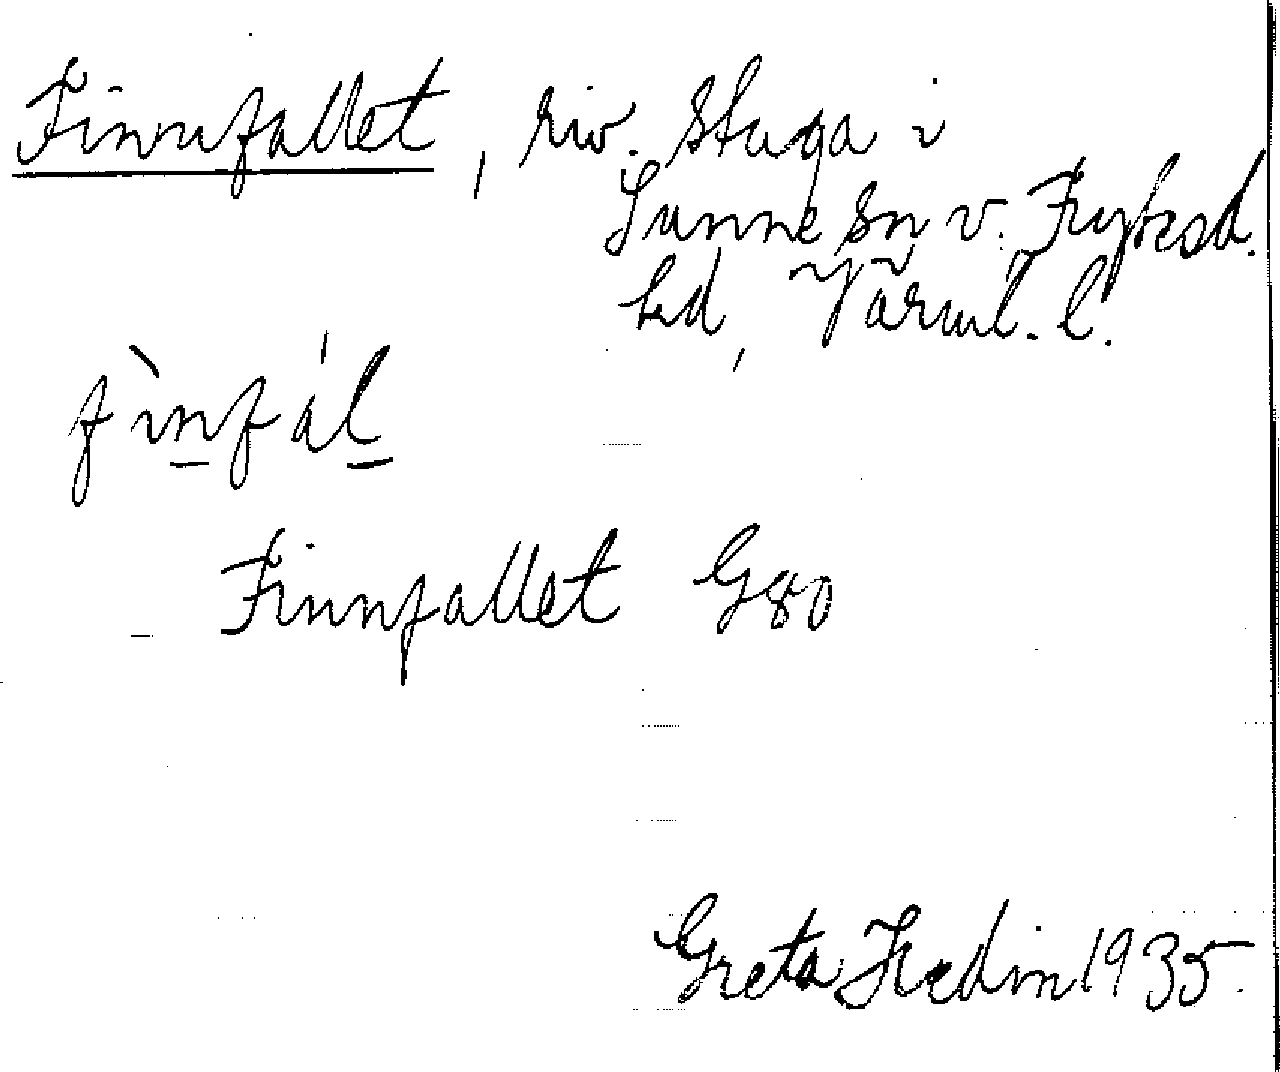 Finnfallet, riv. stuga i
Sunne sn v. Fryksd.
hd, Värml. l.
fìnfál
Finnfallet G80
Greta Hedin 1935.